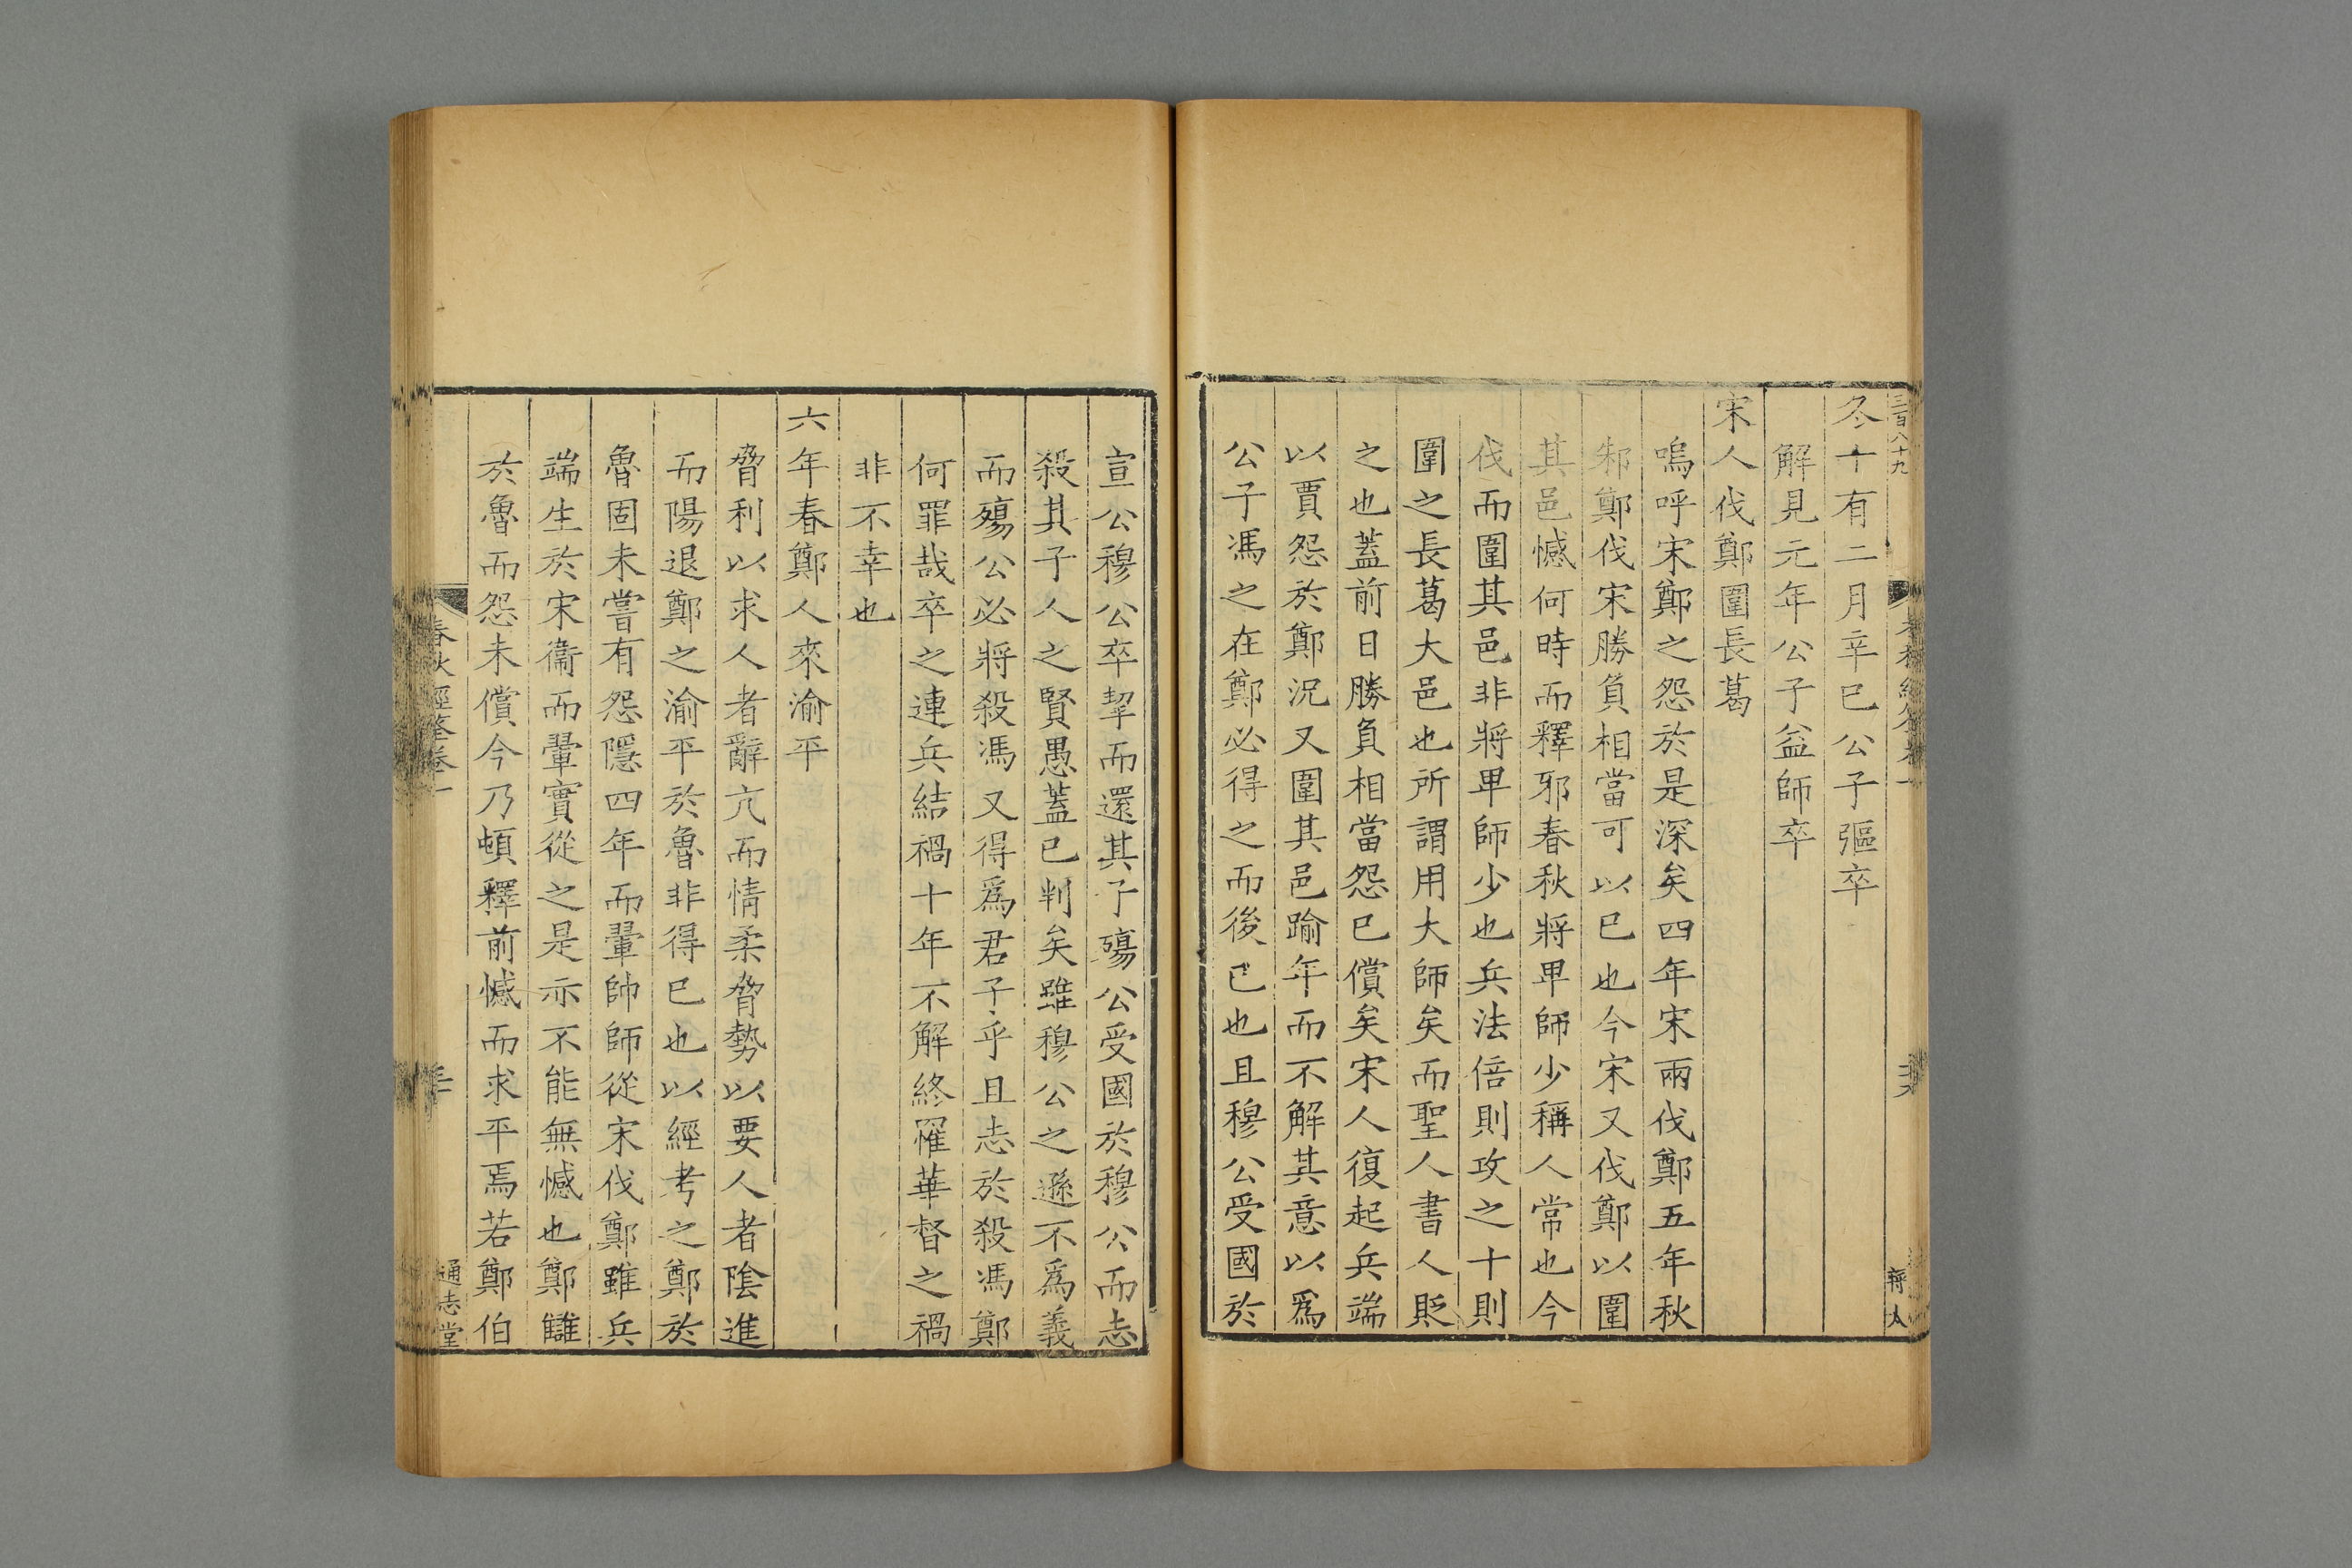 三百八十九
冬十有二月辛巳公子彄卒
解見元年公子益師卒
宋人伐鄭圍長葛
嗚呼宋鄭之怨於是深矣四年宋兩伐鄭五年秋
邾鄭伐宋勝負相當可以已也今宋又伐鄭以圍
其邑憾何時而釋邪春秋將卑師少稱人常也今
伐而圍其邑非將卑師少也兵法倍則攻之十則
圍之長葛大邑也所謂用大師矣而聖人書人貶
之也蓋前日勝負相當怨已償矣宋人復起兵端
以賈怨於鄭況又圍其邑踰年而不解其意以爲
公子馮之在鄭必得之而後已也且穆公受國於
宣公穆公卒挈而還其子殤公受國於穆公而志
殺其子人之賢愚蓋已判矣雖穆公之遜不爲義
而殤公必將殺馮又得爲君子乎且志於殺馮鄭
何罪哉卒之連兵結禍十年不解終罹華督之禍
非不幸也
六年春鄭人來渝平
脅利以求人者辭亢而情柔脅勢以要人者陰進
而陽退鄭之渝平於魯非得已也以經考之鄭於
魯固未嘗有怨隱四年而翬帥師從宋伐鄭雖兵
端生於宋衞而翬實從之是亦不能無憾也鄭讎
於魯而怨未償今乃頓釋前憾而求平焉若鄭伯
春秋經筌卷一
三十
通志堂